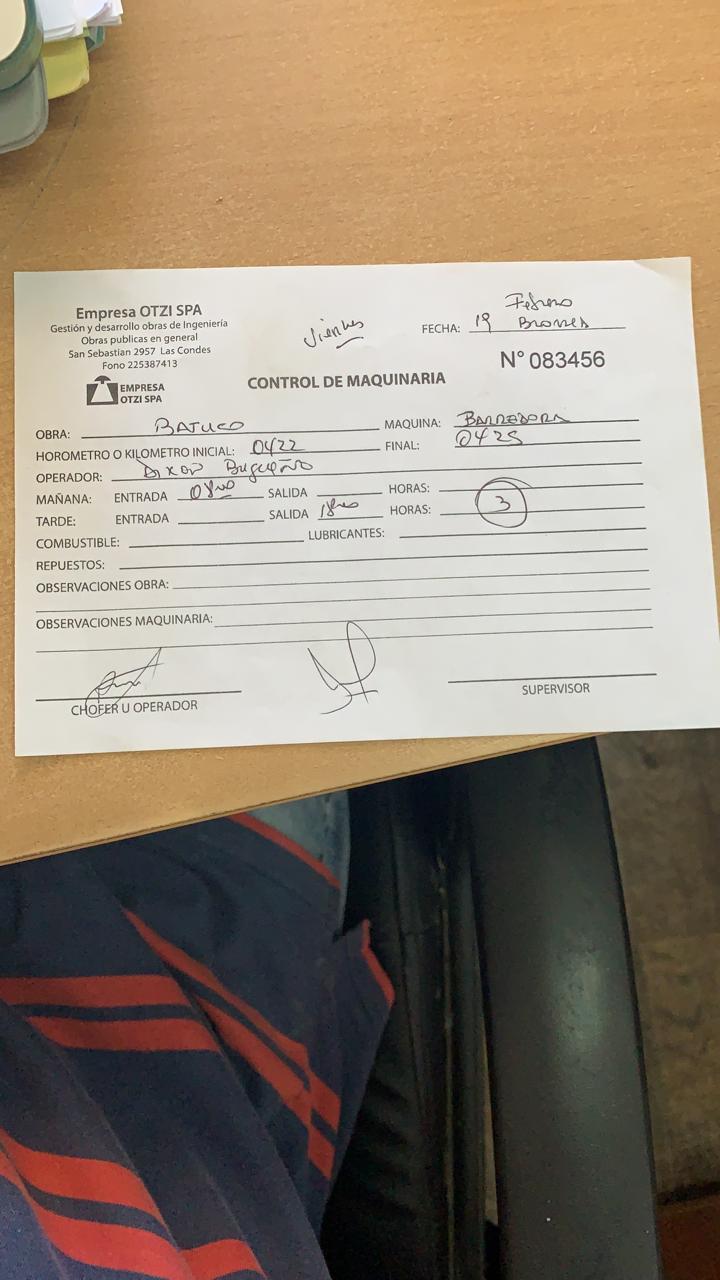 Empresa OTZI SPA
Gestión y desarrollo obras de Ingeniería
Obras publicas en general
San Sebastian 2957 Las Condes
Fono 225387413
EMPRESA
OTZI SPA
Viernes
Febrero
FECHA: 19
N° 083456
CONTROL DE MAQUINARIA
OBRA: BATUCO MAQUINA: BARREDORA
HOROMETRO O KILOMETRO INICIAL: 0422 FINAL: 0425
OPERADOR: Dixon
MAÑANA: ENTRADA 08:00 SALIDA HORAS:
TARDE: ENTRADA SALIDA 18:00 HORAS: 3
COMBUSTIBLE: LUBRICANTES:
REPUESTOS:
OBSERVACIONES OBRA:
OBSERVACIONES MAQUINARIA:
CHOFER U OPERADOR SUPERVISOR